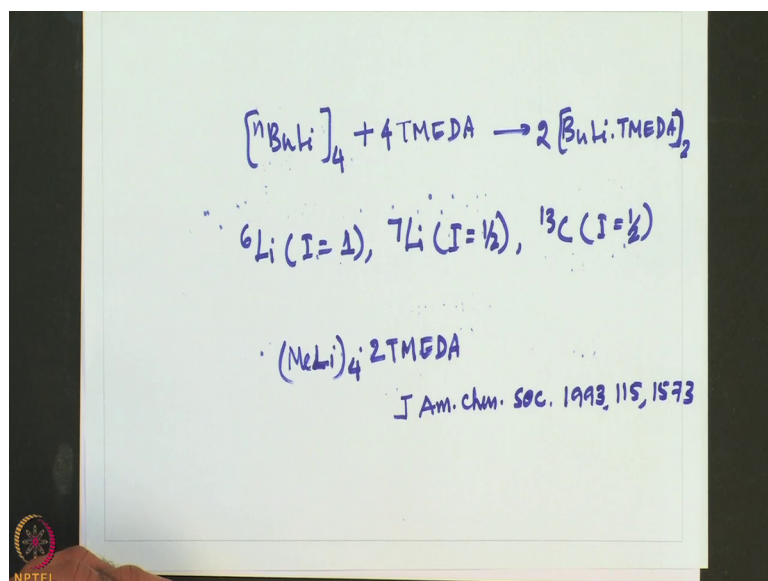 [ⁿBuLi]₄ + 4 TMEDA → 2 [BuLi.TMEDA]₂
⁶Li (I = 1), ⁷Li (I = ½), ¹³C (I = ½)
(MeLi)₄ 2 TMEDA
J Am. chem. soc. 1993, 115, 1573
NPTEL